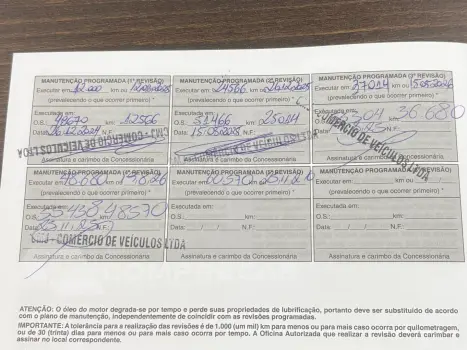 MANUTENÇÃO PROGRAMADA (1ª REVISÃO)
Executar em: 12.000 km ou
(prevalecendo o que ocorrer primeiro) *
Executada em:
O.S.: km: 12506
Data: 26.12.2024 N.F.:
CMD - COMÉRCIO DE VEÍCULOS LTDA
Assinatura e carimbo da Concessionária
MANUTENÇÃO PROGRAMADA (2ª REVISÃO)
Executar em: 24506 km ou 26.12.2025
(prevalecendo o que ocorrer primeiro) *
Executada em:
O.S.: 51466 km: 25014
Data: 15.05.2025 N.F.:
Assinatura e carimbo da Concessionária
MANUTENÇÃO PROGRAMADA (3ª REVISÃO)
Executar em: 37014 km ou 15.05.2026
(prevalecendo o que ocorrer primeiro) *
36680
COMÉRCIO DE VEÍCULOS LTDA
Assinatura e carimbo da Concessionária
MANUTENÇÃO PROGRAMADA (4ª REVISÃO)
Executar em: 48680
(prevalecendo o que ocorrer primeiro) *
Executada em:
O.S.: 55438 km: 48570
Data: N.F.:
CMD - COMÉRCIO DE VEÍCULOS LTDA
Assinatura e carimbo da Concessionária
MANUTENÇÃO PROGRAMADA (5ª REVISÃO)
Executar em: 60570
(prevalecendo o que ocorrer primeiro) *
Executada em:
O.S.: km:
Data: / / N.F.:
Assinatura e carimbo da Concessionária
MANUTENÇÃO PROGRAMADA (6ª REVISÃO)
Executar em: km ou / /
(prevalecendo o que ocorrer primeiro) *
Executada em:
O.S.: km:
Data: / / N.F.:
Assinatura e carimbo da Concessionária
ATENÇÃO: O óleo do motor degrada-se por tempo e perde suas propriedades de lubrificação, portanto deve ser substituído de acordo
com o plano de manutenção, independentemente de coincidir com as revisões programadas.
IMPORTANTE: A tolerância para a realização das revisões é de 1.000 (um mil) km para menos ou para mais caso ocorra por quilometragem,
ou de 30 (trinta) dias para menos ou para mais caso ocorra por tempo. A Oficina Autorizada que realizar a revisão deverá carimbar e
assinar no local correspondente.